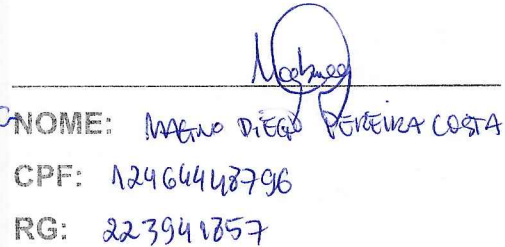 NOME: MAGNO DIEGO PEREIRA COSTA
CPF: 12464448796
RG: 223941857